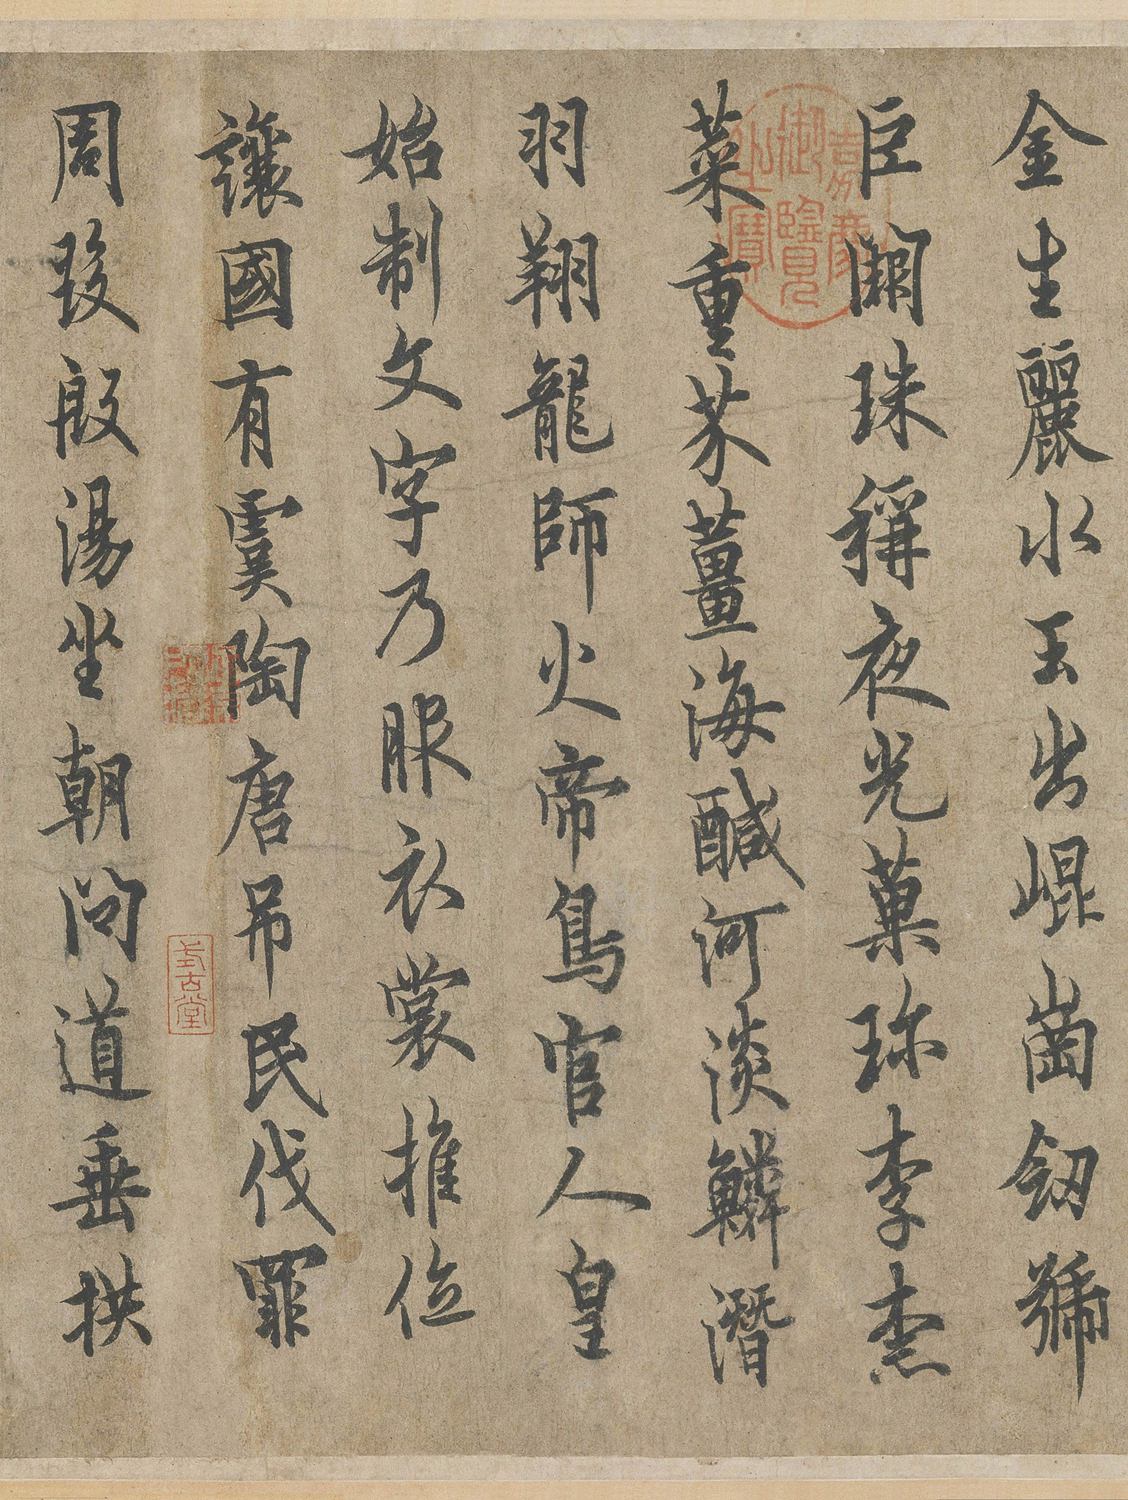 金生麗水玉出崐崗劒號
巨闕珠稱夜光菓珎李柰
菜重芥薑海醎河淡鱗潛
羽翔龍師火帝鳥官人皇
始制文字乃服衣裳推位
讓國有虞陶唐吊民伐罪
周發殷湯坐朝問道垂拱
嘉慶御覽之寶
式古堂